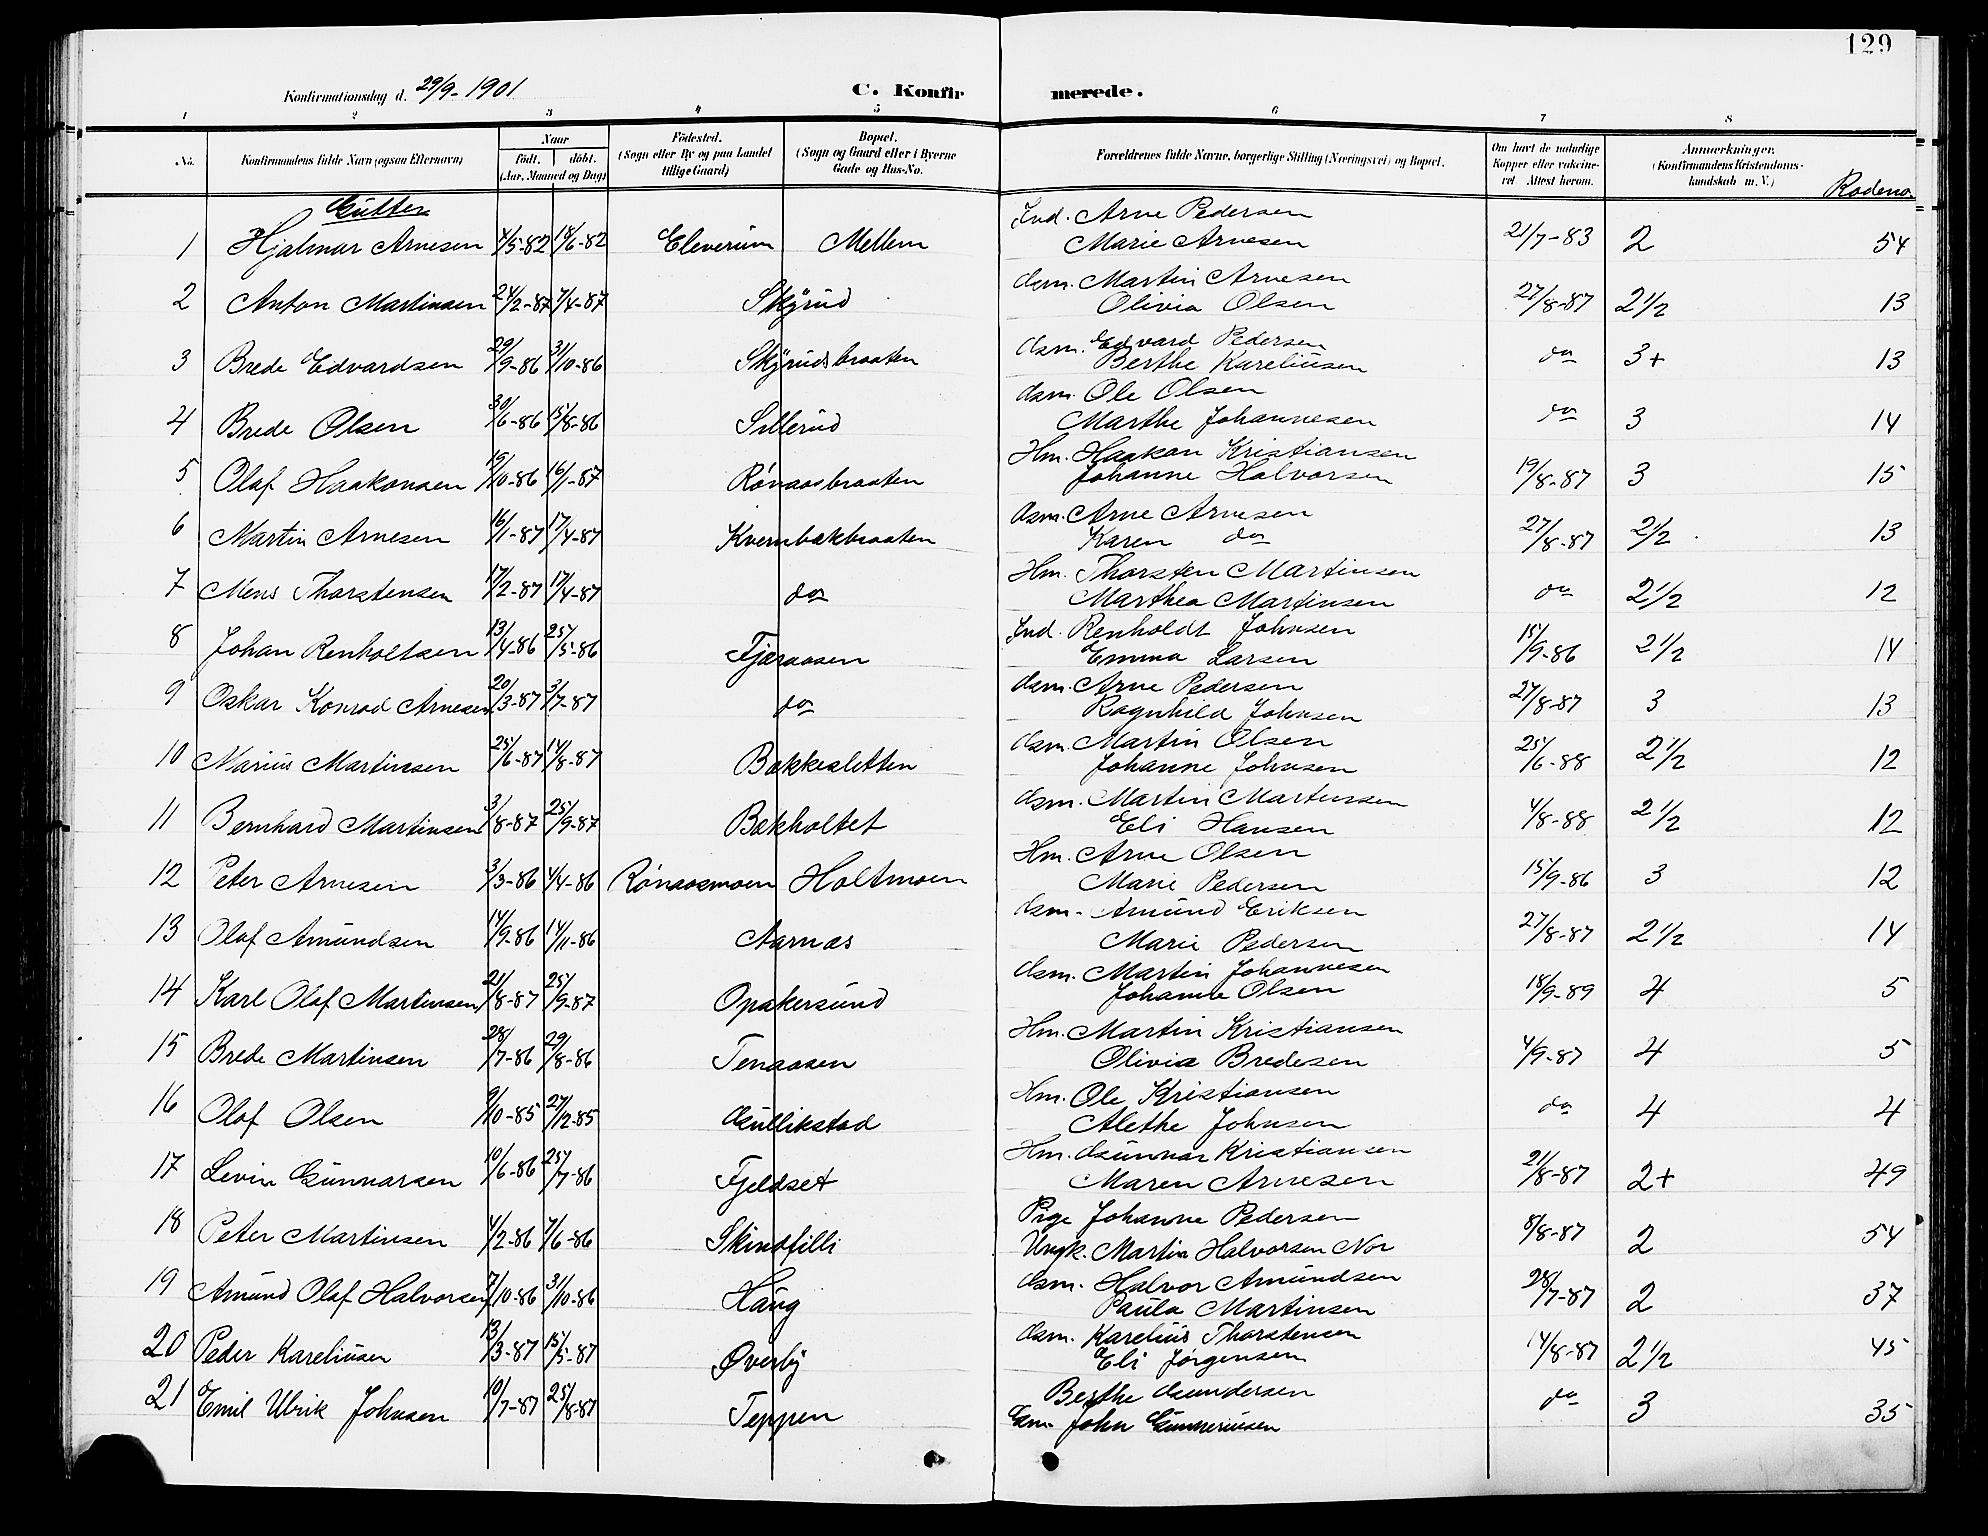 129
Konfirmationsdag d. 29/9-1901 C. Konfir merede.
1 2 3 4 5 6 7 8
No. Konfirmandens fulde Navn (ogsaa Efternavn) Naar födt. döbt. (Aar, Maaned og Dag) Födested. (Sogn eller By og paa Landet tillige Gaard) Bopæl. (Sogn og Gaard eller i Byerne Gade og Hus-No. Forældrenes fulde Navne, borgerlige Stilling (Næringsvei) og Bopæl. Om havt de naturlige Kopper eller vakcineret Attest herom. Anmærkninger. (Konfirmandens Kristendomskundskab m. V.) Rodeno.
Gutter
1 Hjalmar Arnesen 4/5-82 18/6-82 Eleverum Mellem Ind. Arne Pedersen
Marie Arnesen 21/7-83 2 54
2 Anton Martinsen 24/2-87 7/4-87 Skyrud Gsm. Martin Arnesen
Olivia Olsen 27/8-87 2 1/2 13
3 Brede Edvardsen 29/9-86 31/10-86 Skyrudsbraaten Gsm. Edvard Pedersen
Berthe Kareliusen do 3+ 13
4 Brede Olsen 30/6-86 15/8-86 Sillerud Gsm. Ole Olsen
Marthe Johannesen do 3 14
5 Olaf Haakonsen 19/10-86 16/1-87 Rønaasbraaten Hm. Haakon Kristiansen
Johanne Halvorsen 19/8-87 3 15
6 Martin Arnesen 16/1-87 17/4-87 Kvernbækbraaten Gsm. Arne Arnesen
Karen do 27/8-87 2 1/2 13
7 Mens Thorstensen 17/2-87 17/4-87 do Hm. Thorsten Martinsen
Marthea Martinsen do 2 1/2 12
8 Johan Renholtsen 13/4-86 25/5-86 Fjæraasen Ind. Renholdt Johnsen
Emma Larsen 15/9-86 2 1/2 14
9 Oskar Konrad Arnesen 20/3-87 3/7-87 do Gsm. Arne Pedersen
Ragnhild Johnsen 27/8-87 3 13
10 Marius Martinsen 25/6-87 14/8-87 Bækkesletten Gsm. Martin Olsen
Johanne Johnsen 25/6-88 2 1/2 12
11 Bernhard Martinsen 3/8-87 25/9-87 Bækholtet Gsm. Martin Martinsen
Eli Hansen 4/8-88 2 1/2 12
12 Peter Arnesen 3/3-86 4/4-86 Rønaasmoen Holtmoen Hm. Arne Olsen
Marie Pedersen 15/9-86 3 12
13 Olaf Amundsen 14/9-86 14/11-86 Aarnæs Gsm. Amund Eriksen
Marie Pedersen 27/8-87 2 1/2 14
14 Karl Olaf Martinsen 21/8-87 25/9-87 Opakersund Gsm. Martin Johannesen
Johanne Olsen 18/9-89 4 5
15 Brede Martinsen 28/7-86 29/8-86 Tenaasen Hm. Martin Kristiansen
Olivia Bredesen 4/9-87 4 5
16 Olaf Olsen 9/10-85 27/12-85 Gullikstad Hm. Ole Kristiansen
Alethe Johnsen do 4 4
17 Levin Gunnarsen 10/6-86 25/7-86 Fjeldset Hm. Gunnar Kristiansen
Maren Arnesen 21/8-87 2+ 49
18 Peter Martinsen 4/2-86 7/6-86 Skindfilli Pige Johanne Pedersen
Ungk. Martin Halvorsen Nor 8/8-87 2 54
19 Amund Olaf Halvorsen 7/10-86 31/10-86 Haug Gsm. Halvor Amundsen
Paula Martinsen 28/7-87 2 37
20 Peder Kareliusen 13/3-87 15/5-87 Øverby Gsm. Karelius Thorstensen
Eli Jørgensen 14/8-87 2 1/2 45
21 Emil Ulrik Johnsen 10/7-87 25/8-87 Teppen Berthe Gundersen
Gm. John Gunneriusen do 3 35